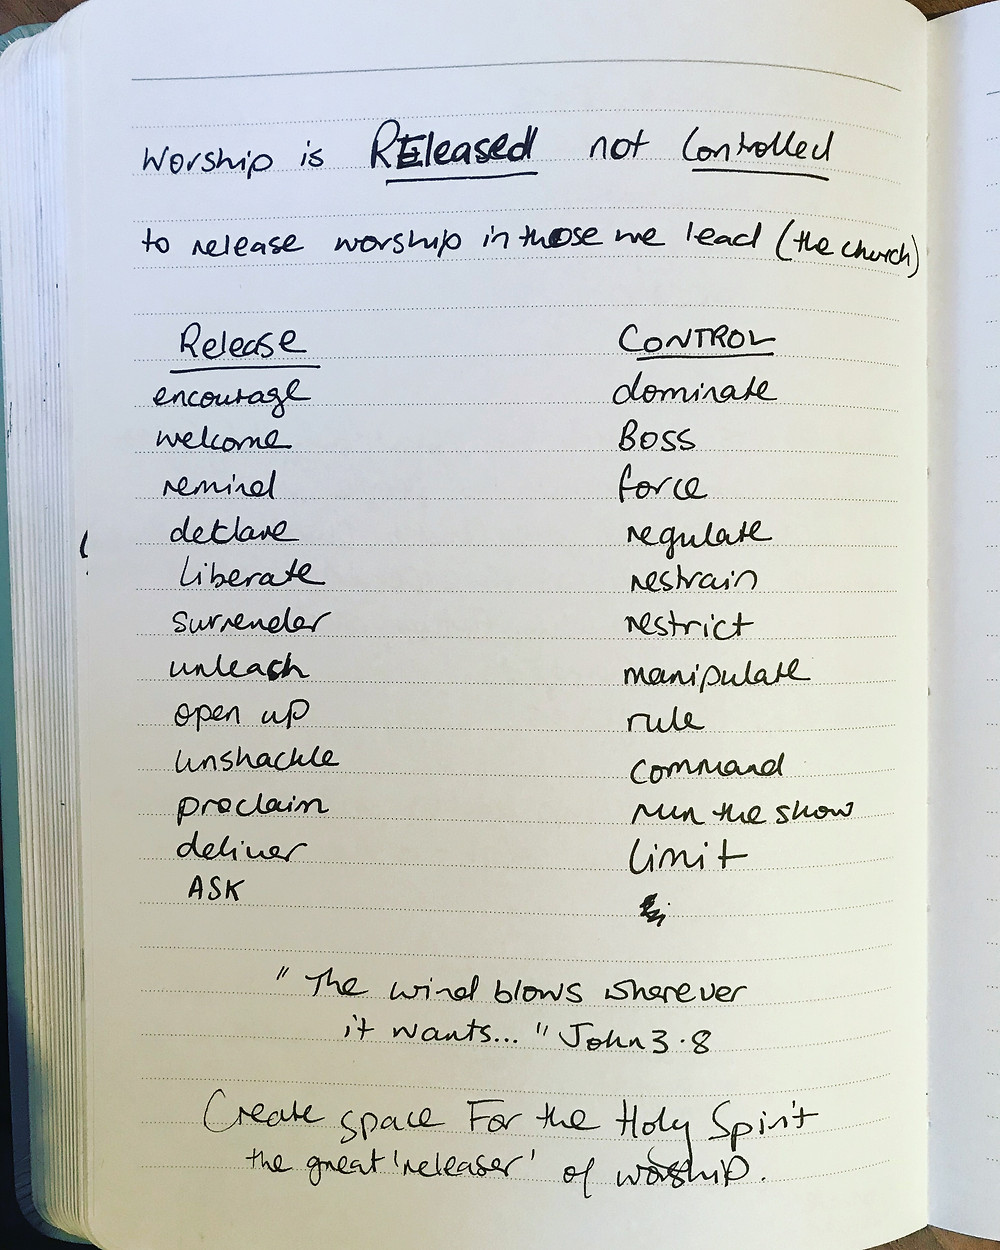 Worship is REleased not Controlled
to release worship in those we lead (the church)
Release CONTROL
encourage dominate
welcome Boss
remind force
declare regulate
liberate restrain
surrender restrict
unleash manipulate
open up rule
unshackle command
proclaim run the show
deliver limit
ASK
" The wind blows wherever
it wants... " John 3.8
Create space For the Holy Spirit
the great 'releaser' of worship.